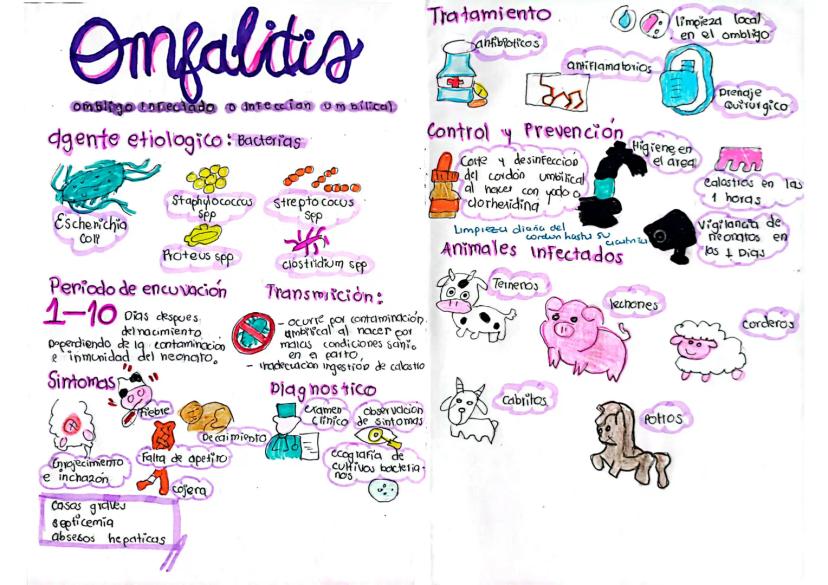 Omfalitis
ombligo infectado o infeccion umbilical
agente etiologico: Bacterias
Escherichia
coli
Staphylococcus
spp
Streptococus
spp
Proteus spp
clostridium spp
Periodo de encuvación
1-10 Dias despues
del nacimiento
Dependiendo de la contaminación
e inmunidad del neonato.
Transmición:
- ocurre por contaminación
umbilical al nacer por
malas condiciones sani-
en el parto,
- inadecuación ingestion de calostro
Sintomas
Fiebre
Decaimiento
Enrojecimiento
e inchazón
Falta de apetito
cojera
casos graves
septicemia
absesos hepaticas
Diagnostico
examen
clinico
observación
de sintomas
ecografia de
cultivos bacteria-
nos
Tratamiento
antibioticos
limpieza local
en el ombligo
antiflamatorios
Drenaje
Quirurgico
Control y Prevención
Corte y desinfeccion
del cordon umbilical
al nacer con yodo o
clorhexidina
Higiene en
el area
calostros en las
1 horas
Limpieza diaria del
cordon hasta su
Vigilancia de
neonatos en
los 1 Dias
Animales Infectados
Terneros
lechones
corderos
Cabritos
Potros